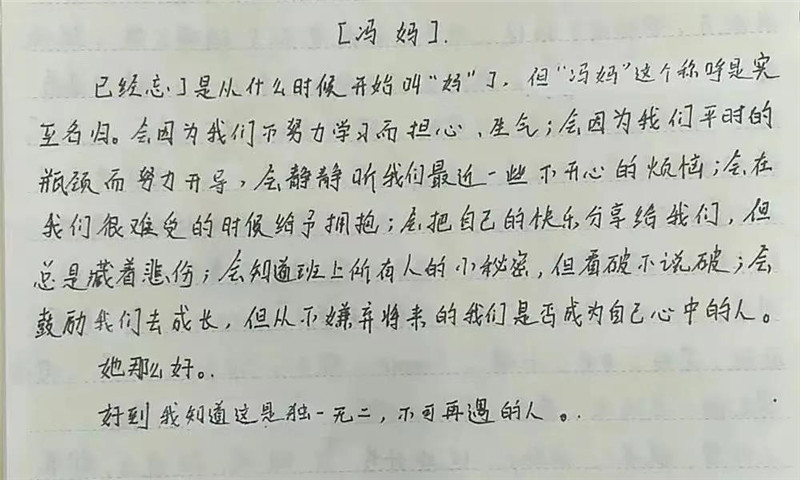 [冯妈].
已经忘了是从什么时候开始叫"妈"了，但"冯妈"这个称呼是实
至名归。会因为我们不努力学习而担心、生气；会因为我们平时的
瓶颈而努力开导，会静静听我们最近一些不开心的烦恼；会在
我们很难受的时候给予拥抱；会把自己的快乐分享给我们，但
总是藏着悲伤；会知道班上所有人的小秘密，但看破不说破；会
鼓励我们去成长，但从不嫌弃将来的我们是否成为自己心中的人。
她那么好。.
好到我知道这是独一无二，不可再遇的人。.